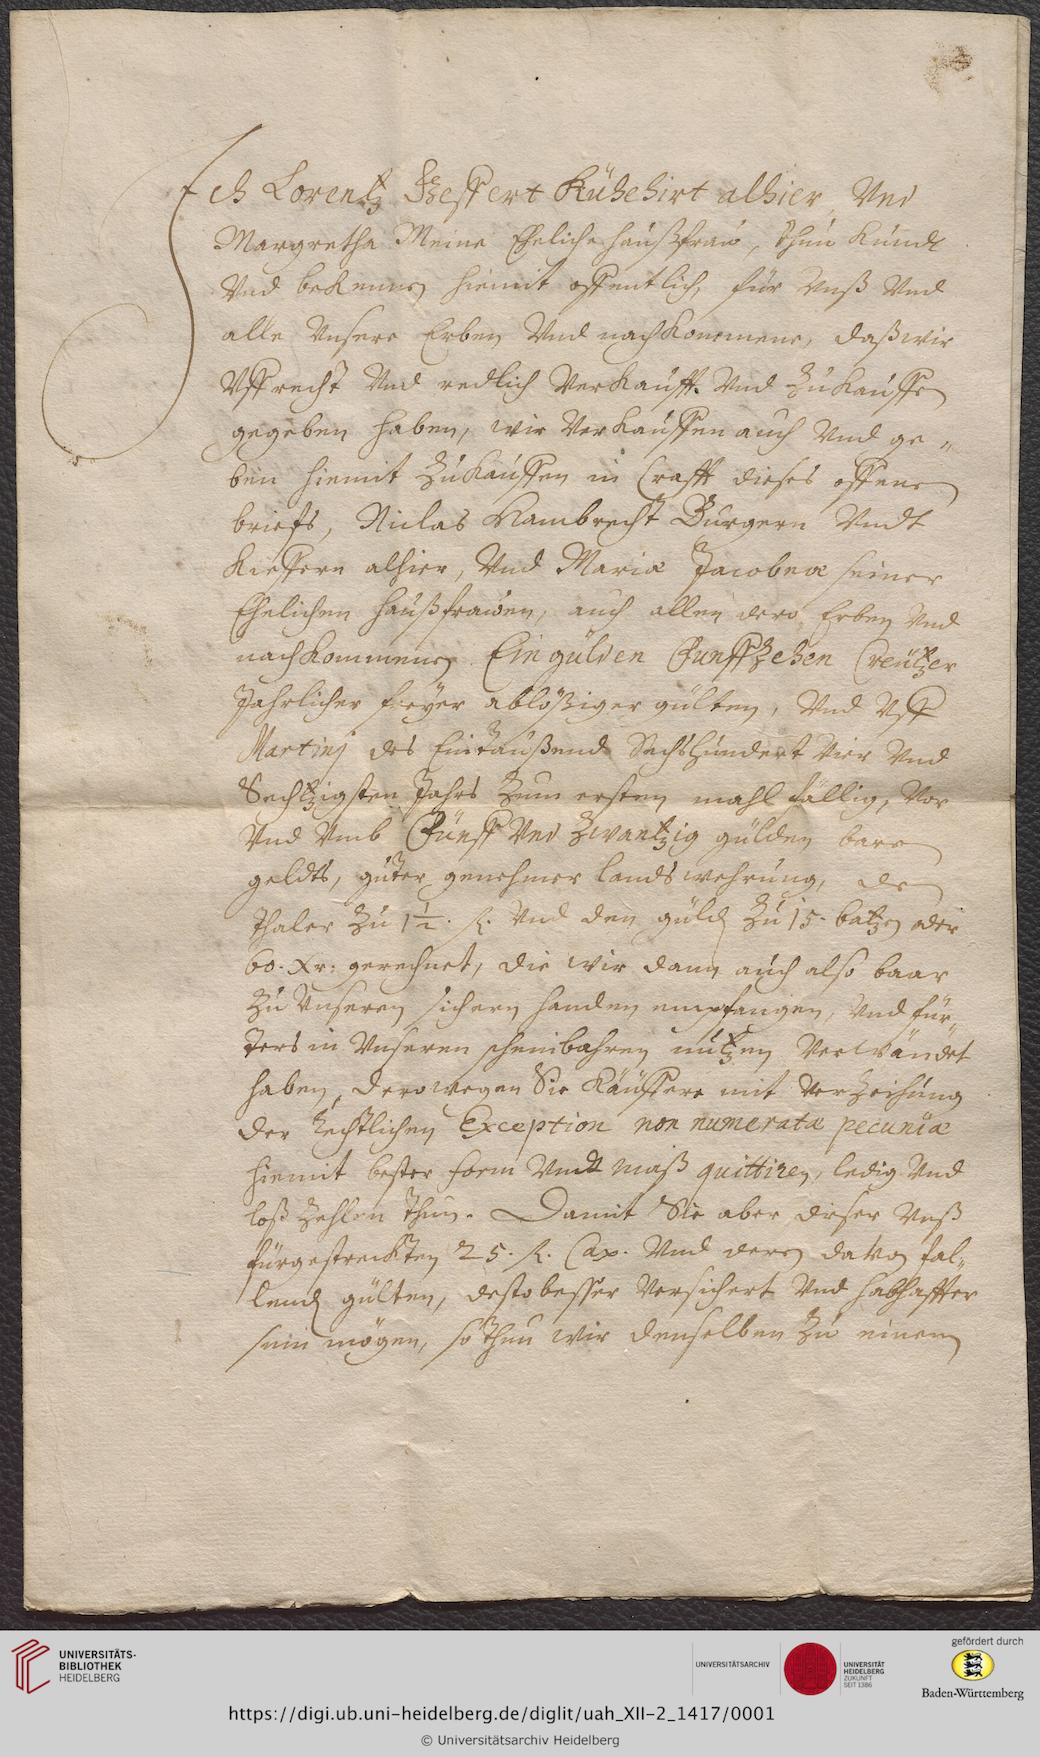 Ich Lorentz Hessert Kühehirt alhier, Vnd
Margretha Meine Eheliche haußfraw, thun Kundt
Vnd beKennen hiemit offentlich, für Vnß Vnd
alle Vnsere Erben Vnd nachKommene, daß wir
Vffrecht Vnd redlich VerKaufft Vnd ZuKauffen
gegeben haben, wir VerKauffen auch Vnd ge-
ben hiemit ZuKauffen in Crafft dieses offenen
briefs, Niclas Hambrecht Burgern Vndt
Kieffern alhier, Vnd Mariæ Jacobeæ seiner
Ehelichen haußfrawen, auch allen dero Erben Vnd
nachKommenen Ein gülden Funffzehen Creützer
Jahrlicher freyer ablößiger gülten, Vnd Vff
Martinj des Eintaußend Sechshundert Vier Vnd
Sechtzigsten Jahrs Zum ersten mahl fällig, Vor
Vnd Vmb Fünff Vnd Zwantzig gülden baren
geldts, guter genehmer landswehrung, den
thaler Zu 1½. fl. Vnd den güld Zu 15. batzen oder
60. Xr: gerechnet, die wir dann auch also baar
Zu Vnseren sichern handen empfangen, Vnd für-
ters in Vnseren scheinbahren nutzen Verwändet
haben, derowegen Sie Käuffere mit VerZeihung
der Rechtlichen Exception non numeratæ pecuniæ
hiemit bester form Vndt maß quittiren, ledig Vnd
loß Zehlen thun. Damit Sie aber dieser Vnß
fürgestreckten 25. fl. Cap. Vnd deren davon fal-
lend gülten, desto besser Versichert Vnd habhaffter
sein mögen, so thun wir denselben Zu einem
UNIVERSITÄTS-
BIBLIOTHEK
HEIDELBERG
UNIVERSITÄTSARCHIV
UNIVERSITÄT
HEIDELBERG
ZUKUNFT
SEIT 1386
gefördert durch
Baden-Württemberg
https://digi.ub.uni-heidelberg.de/diglit/uah_XII-2_1417/0001
© Universitätsarchiv Heidelberg